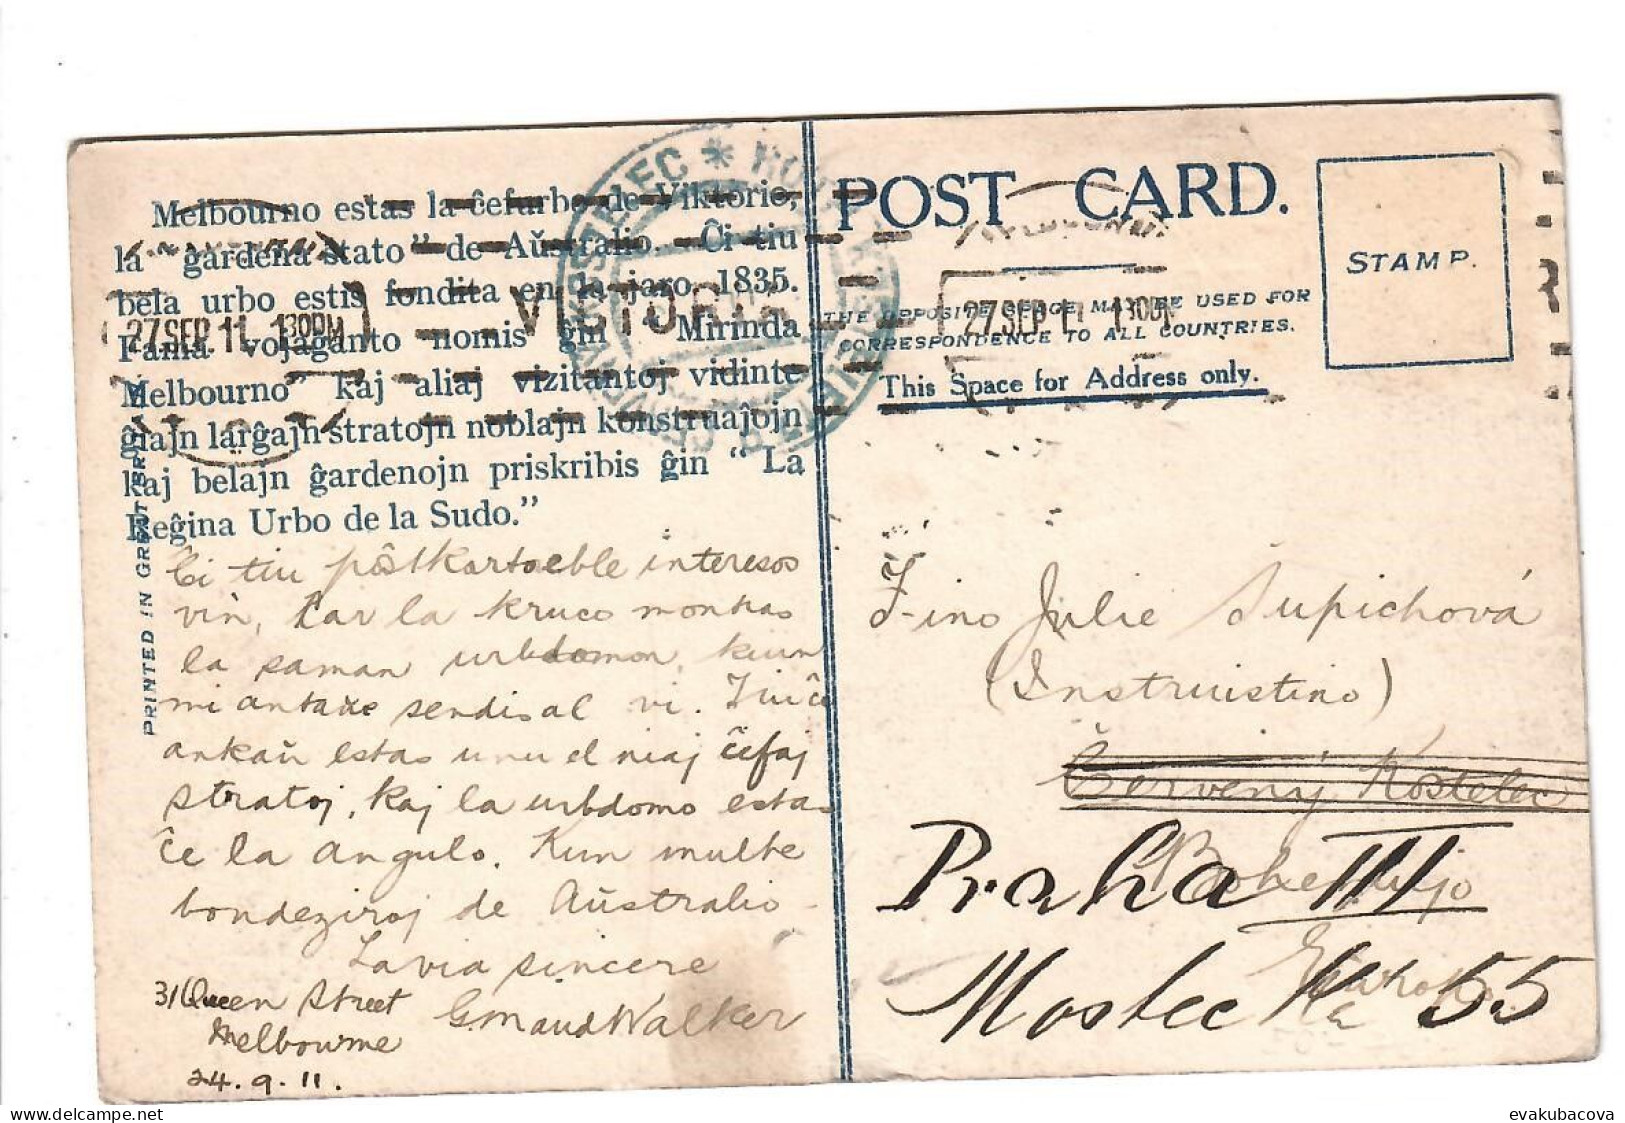 Melbourno estas la ĉefurbo de Viktorio,
la "ĝardena stato" de Aŭstralio. Ĉi tiu
bela urbo estis fondita en la jaro 1835.
Fama vojaĝanto nomis ĝin "Mirinda
Melbourno" kaj aliaj vizitantoj vidinte
ĝiajn larĝajn stratojn noblajn konstruaĵojn
kaj belajn ĝardenojn priskribis ĝin "La
Reĝina Urbo de la Sudo."
Ĉi tiu pôstkarto eble interesos
vin, ĉar la kruco montras
la saman urbdomon, kiun
mi antaŭe sendis al vi. Tiu ĉi
ankaŭ estas unu el niaj ĉefaj
stratoj, kaj la urbdomo estas
ĉe la angulo. Kun multe
bondeziroj de Aŭstralio
La via sincere
G Maud Walker
31 Queen Street
Melbourne
24.9.11.
PRINTED IN GREAT BRITAIN
27 SEP 11 130PM
VICTORIA
27 SEP 11 130PM
KOSTELEC *
POST CARD.
STAMP.
THE OPPOSITE SPACE MAY BE USED FOR
CORRESPONDENCE TO ALL COUNTRIES.
This Space for Address only.
F-ino Julie Šupichová
(Instruistino)
Červeny Kostelec
Bohemujo
Praha III
Eŭropo
Mostec 55
evakubacova